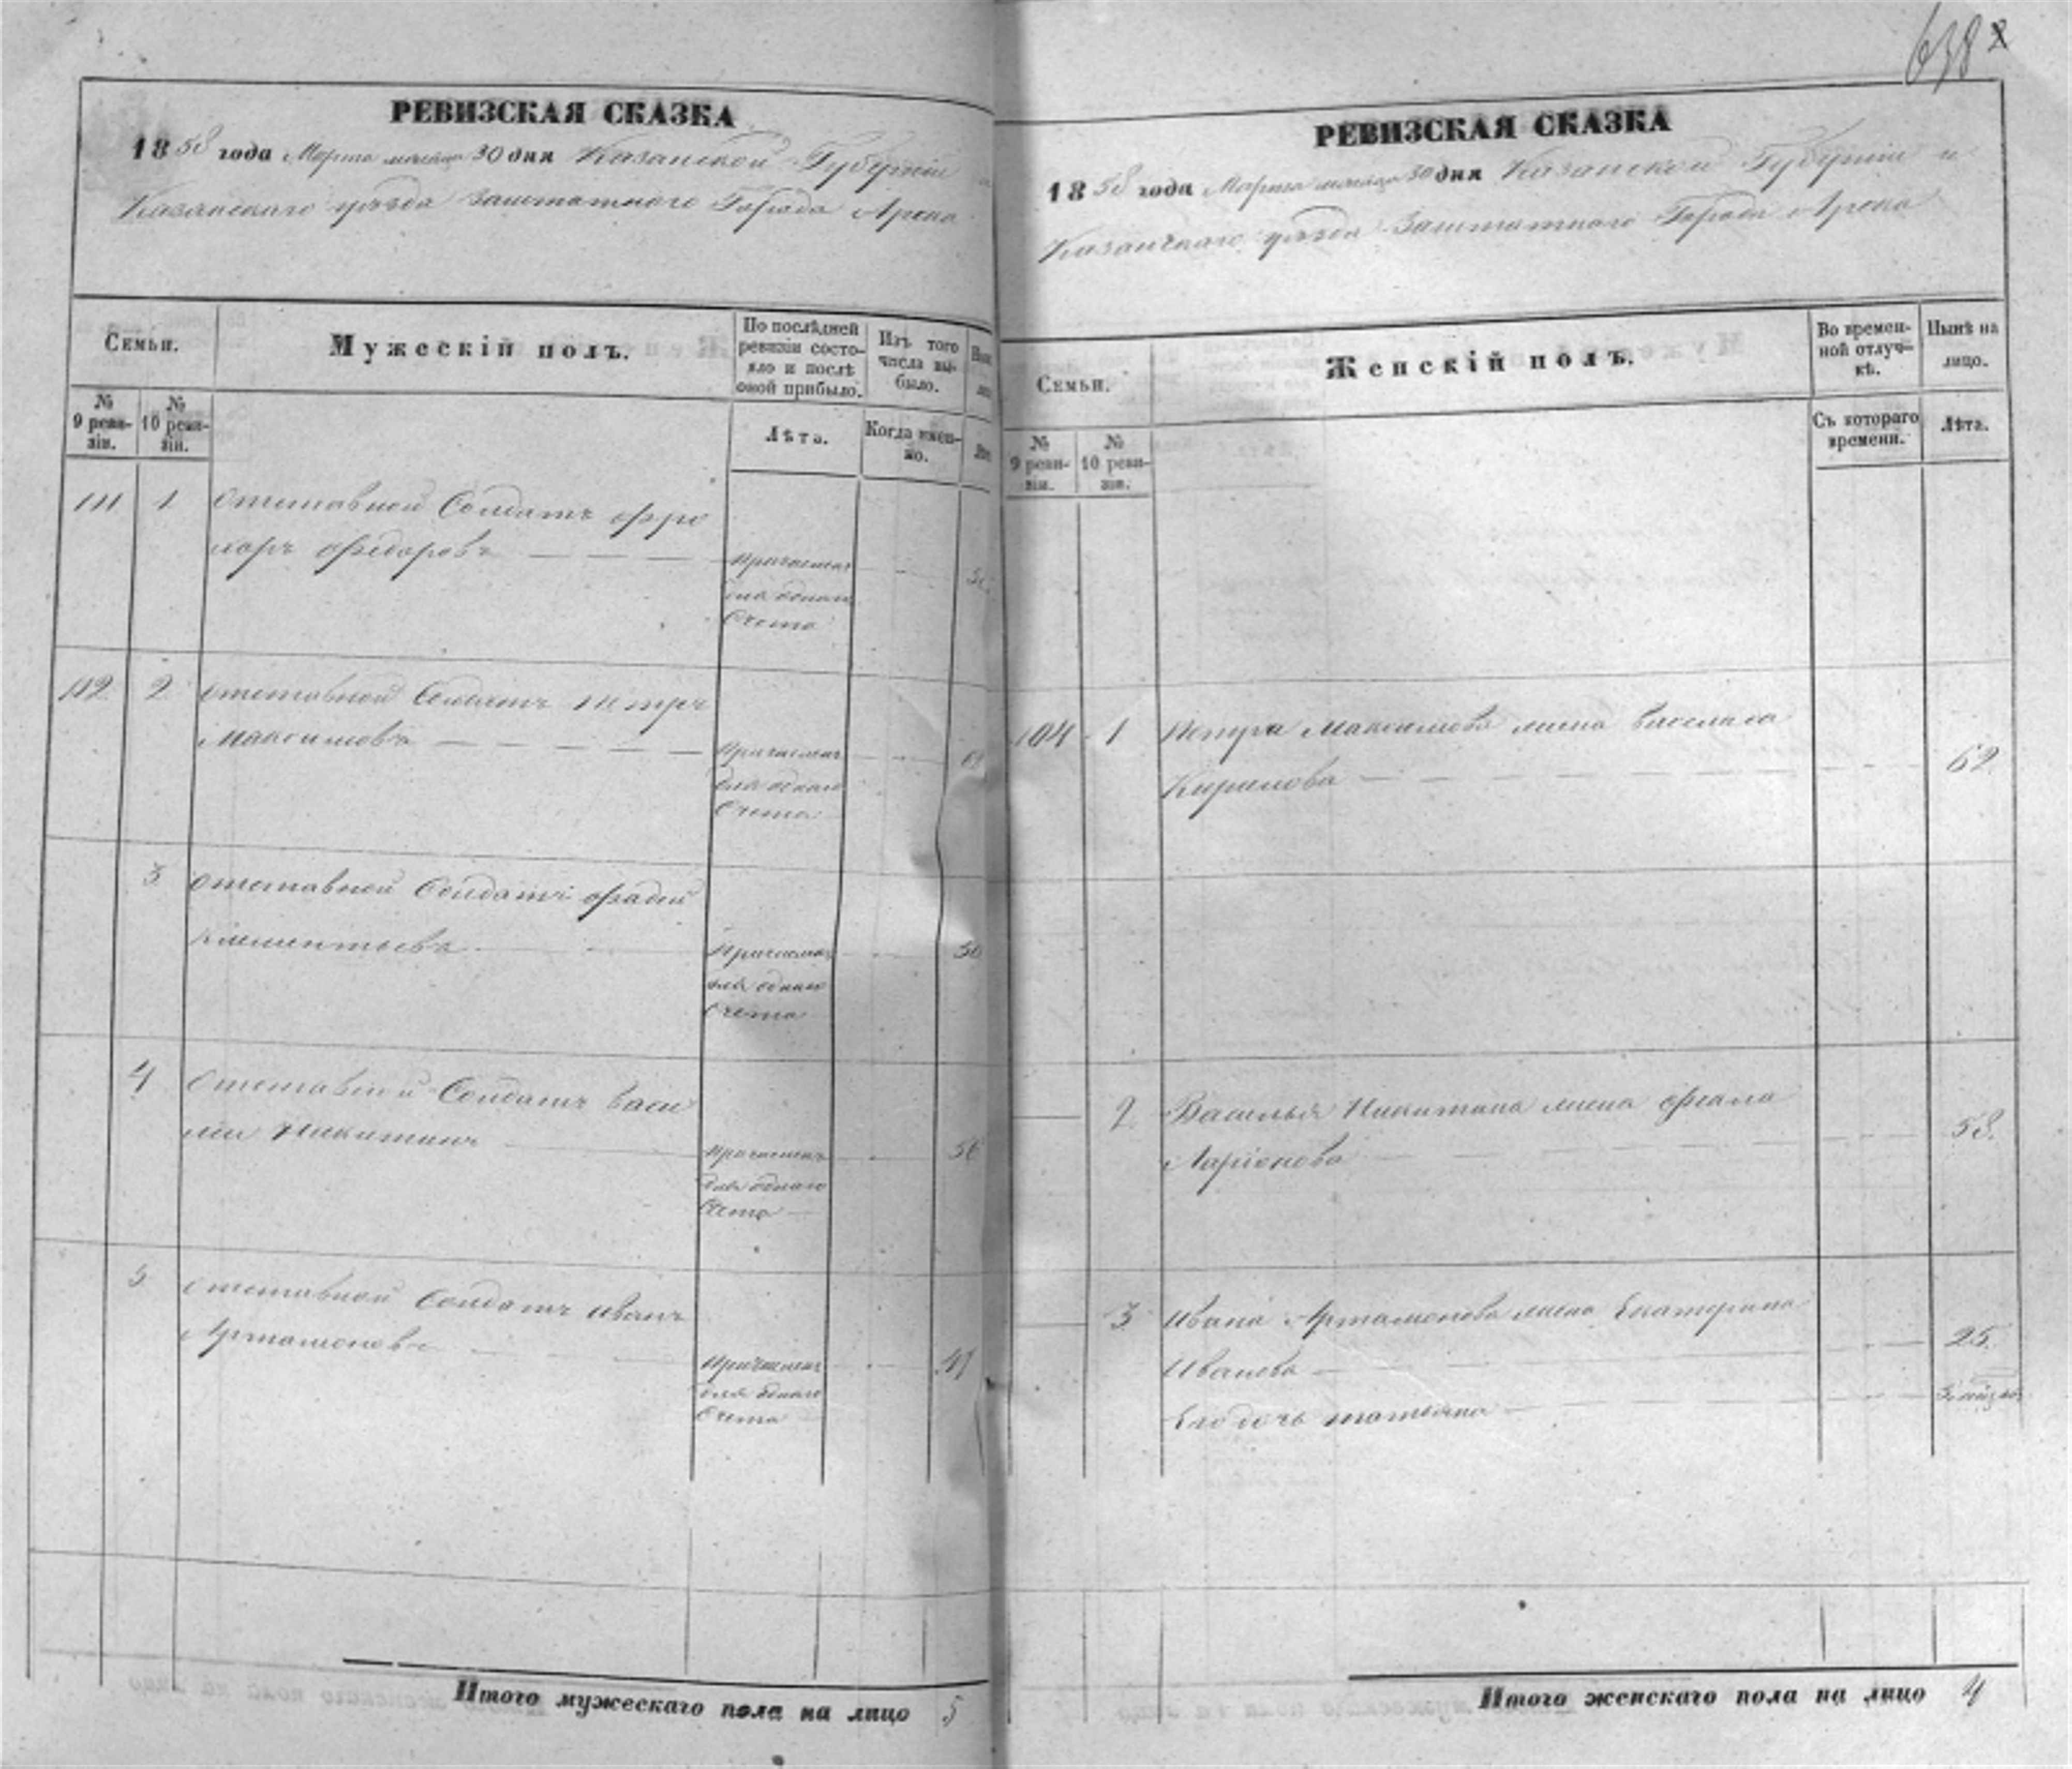 638
РЕВИЗСКАЯ СКАЗКА
1858 года Марта месяца 30 дня Казанской Губернiи и
Казанскаго уѣзда заштатнаго Города Арска
Семьи.
Мужескій полъ.
По послѣдней ревизіи состояло и послѣ оной прибыло.
Изъ того числа выбыло.
№ 9 ревизіи.
№ 10 ревизіи.
Лѣта.
Когда именно.
111 1 Отставной Солдатъ
Федоровъ
Причислен
для однаго
Счета
112 2 отставной Солдатъ Петръ
Максимовъ
Причислен
для однаго
Счета
3 отставной Солдатъ Фадей
Климентьевъ
50
Причислен
для однаго
Счета
4 Отставной Солдатъ Васи
лий Никитинъ
56
Причислен
для однаго
Счета
5 Отставной Солдатъ Иванъ
Артамоновъ
47
Причислен
для однаго
Счета
Итого мужескаго пола на лицо 5
РЕВИЗСКАЯ СКАЗКА
1858 года Марта месяца 30 дня Казанской Губернiи и
Казанскаго уѣзда Заштатнаго Города Арска
Семьи.
Женскій полъ.
Во временной отлучкѣ.
Нынѣ на лицо.
№ 9 ревизіи.
№ 10 ревизіи.
Съ котораго времени.
Лѣта.
104 1 Петра Максимова жена
Кирилова 62
2 Василья Никитина жена Фекла
Ларіонова 58.
3 Ивана Артамонова жена Екатерина
Иванова 25.
Ево дочь татьяна
Итого женскаго пола на лицо 4